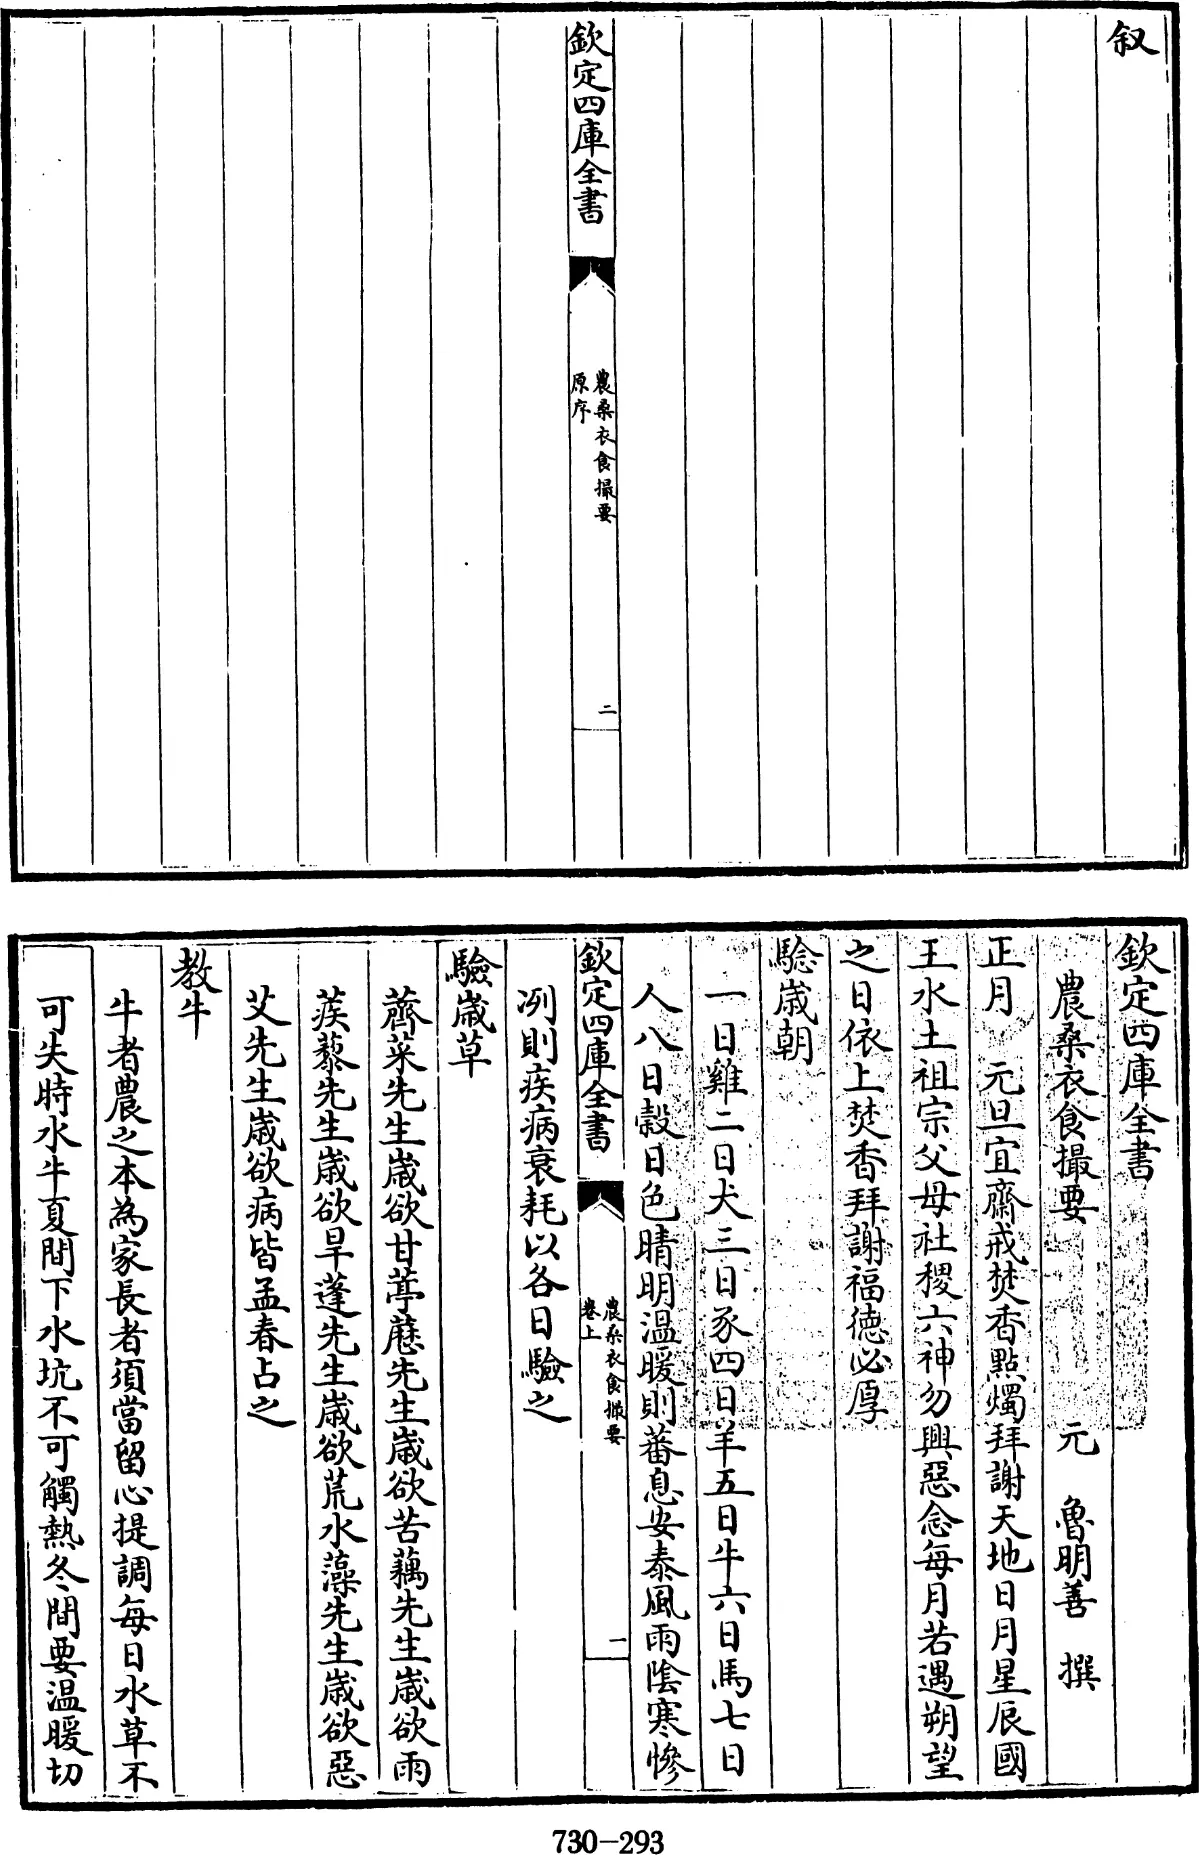 叙
欽定四庫全書
農桑衣食撮要
原序
二
欽定四庫全書
農桑衣食撮要 元 魯明善 撰
正月 元旦宜齋戒焚香點燭拜謝天地日月星辰國
王水土祖宗父母社稷六神勿興惡念每月若遇朔望
之日依上焚香拜謝福德必厚
騐歲朝
一日雞二日犬三日豕四日羊五日牛六日馬七日
人八日穀日色晴明溫暖則蕃息安泰風雨陰寒慘
欽定四庫全書
農桑衣食撮要
卷上
一
冽則疾病衰耗以各日驗之
驗歲草
薺菜先生歲欲甘葶藶先生歲欲苦藕先生歲欲雨
蒺藜先生歲欲旱蓬先生歲欲荒水藻先生歲欲惡
艾先生歲欲病皆孟春占之
教牛
牛者農之本為家長者須當留心提調每日水草不
可失時水牛夏間下水坑不可觸熱冬間要溫暖切
730-293